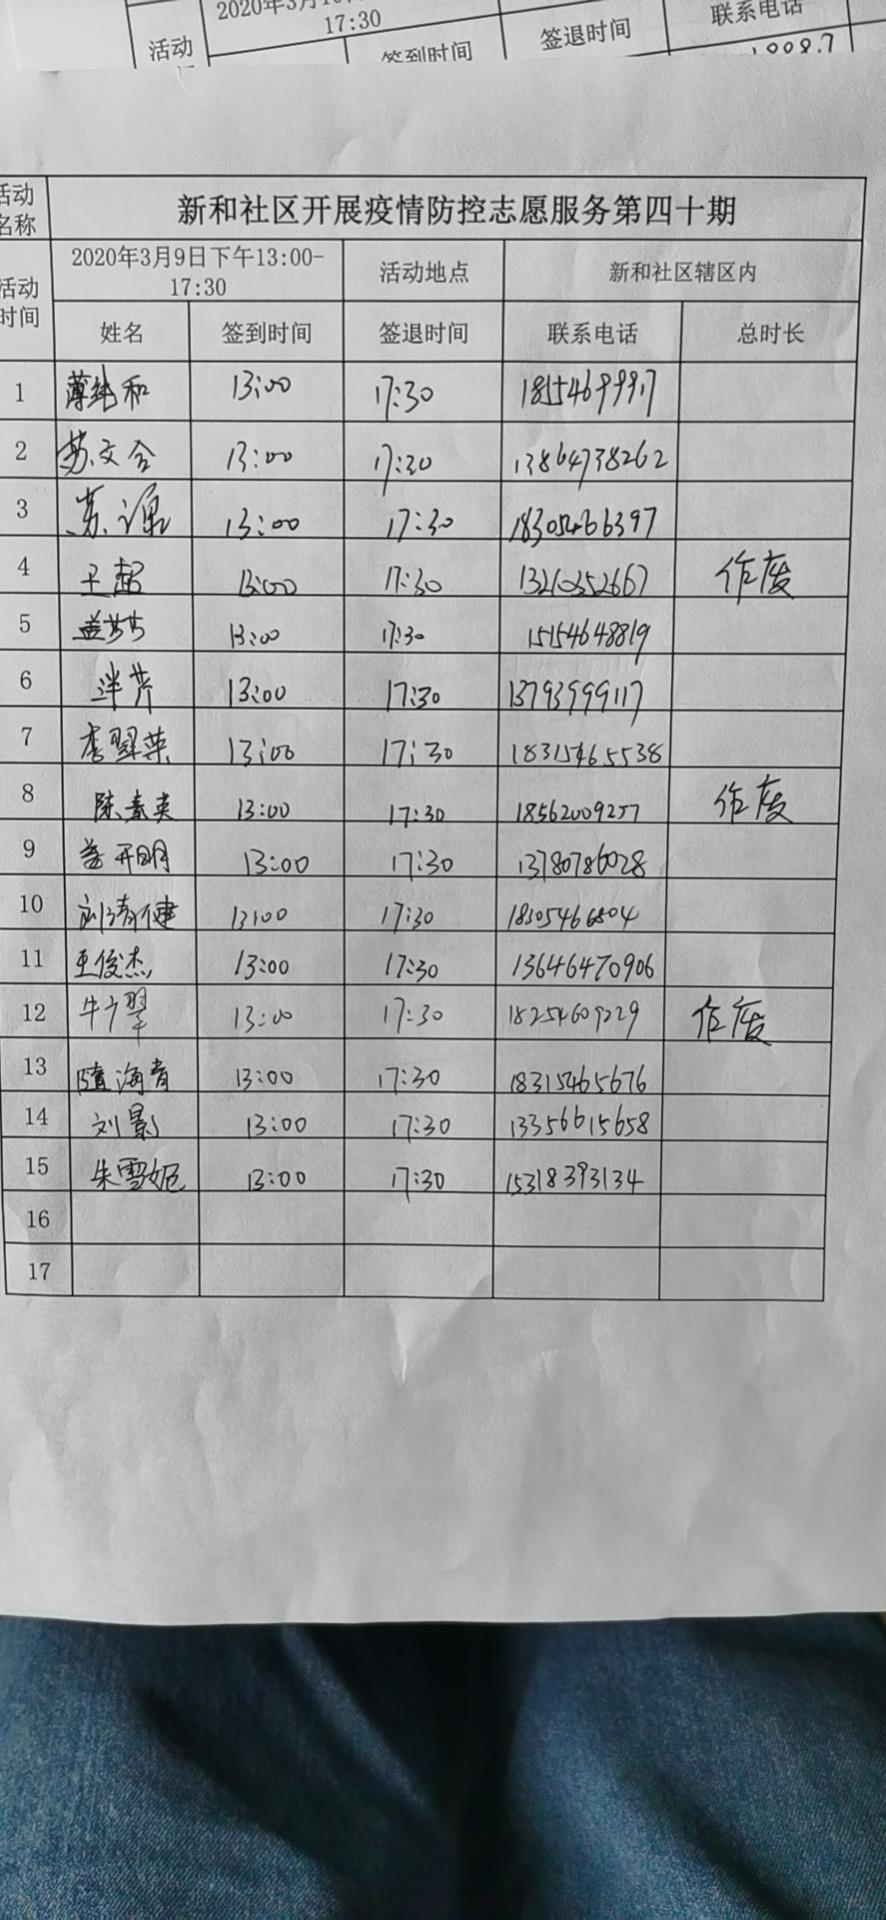 2020年3月10
17:30
活动
签到时间
签退时间
联系电话
活动名称 新和社区开展疫情防控志愿服务第四十期
活动时间 2020年3月9日下午13:00-17:30 活动地点 新和社区辖区内
姓名 签到时间 签退时间 联系电话 总时长
1 薄纯和 13:00 17:30 18154699917
2 苏文合 13:00 17:30 13864738262
3 苏 13:00 17:30 18305466397
4 王超 13:00 17:30 13210352667 作废
5 盖芳芳 13:00 17:30 15154648819
6 芹 13:00 17:30 13793999117
7 李翠荣 13:00 17:30 18315465538
8 陈素英 13:00 17:30 18562009257 作废
9 盖开明 13:00 17:30 13780786028
10 刘清健 13:00 17:30 18505466804
11 王俊杰 13:00 17:30 13646470906
12 牛翠 13:00 17:30 18254609229 作废
13 隋海青 13:00 17:30 18315465676
14 刘影 13:00 17:30 13356615658
15 朱雪妮 13:00 17:30 15318393134
16
17